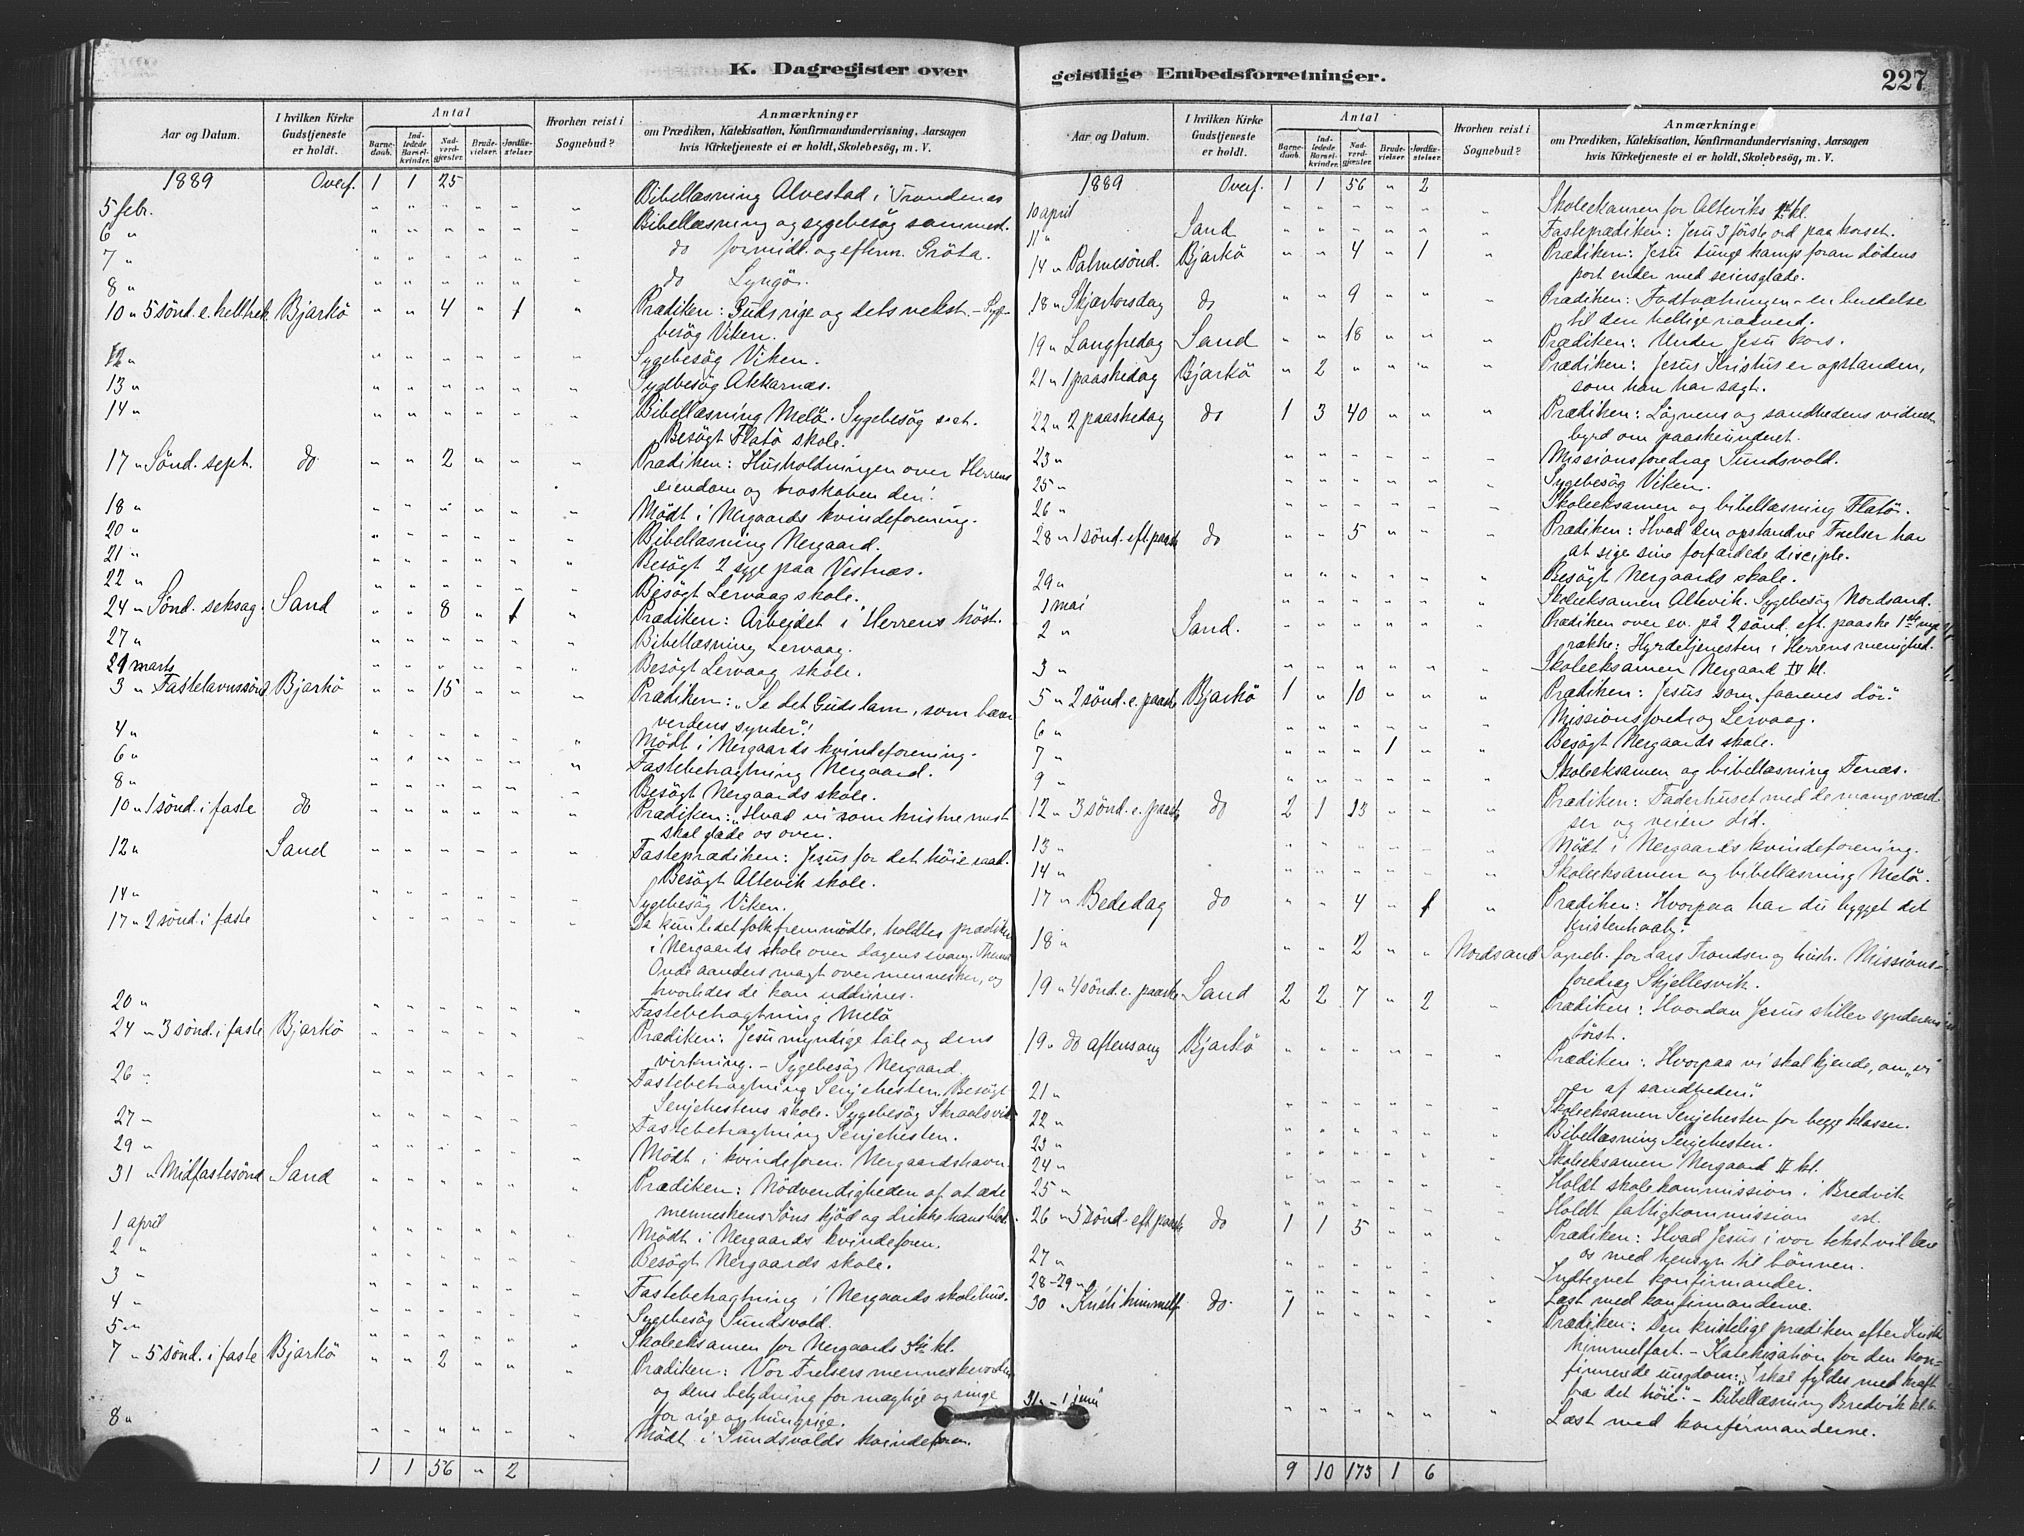 K. Dagregister over
Aar og Datum.
I hvilken Kirke Gudstjeneste er holdt.
Antal
Barnedaab.
Indledede Barselkvinder.
Nadverdgjæster.
Brudevielser.
Jordfæstelser
Hvorhen reist i Sognebud?
Anmærkninger
om Prædiken, Katekisation, Konfirmandundervisning, Aarsagen
hvis Kirketjeneste ei er holdt, Skolebesøg, m. V.
1889 Overf. 1 1 25
5 febr. " " " " " " Bibellæsning Alvestad i Trondenæs
6 " " " " " " " Bibellæsning og sygebesøg sammest.
7 " " " " " " " do formidd. og efterm. Gröta.
8 " " " " " " " do Lyngö.
10 " 5 sönd. e. helltrek. Bjarkö " " 4 " 1 " Prædiken: Guds rige og dets vekst. - Syge-
besög Viken.
12 " " " " " " " Sygebesög Viken.
13 " " " " " " " Sygebesög Akkarnæs.
14 " " " " " " " Bibellæsning Melö. Sygebesög sst.
Besögt Flatö skole.
17 " Sönd. sept. do " " 2 " " " Prædiken: Husholdningen over Herrens
eiendom og troskaben deri.
18 " " " " " " " Mödt i Nergaards kvindeforening.
20 " " " " " " " Bibellæsning Nergaard.
21 " " " " " " " Besögt 2 syge paa Vestnæs.
22 " " " " " " " Besögt Lervaag skole.
24 " Sönd. seksag. Sand " " 8 " 1 " Prædiken: Arbejdet i Herrens höst.
27 " " " " " " " Bibellæsning Lervaag.
1 marts " " " " " " Besögt Lervaag skole.
3 " Fastelavnssönd. Bjarkö " " 15 " " " Prædiken: "Se det Guds lam, som bærer
verdens synder"!
4 " " " " " " " Mödt i Nergaards kvindeforening.
6 " " " " " " " Fastebetragtning Nergaard.
8 " " " " " " " Besögt Nergaards skole.
10 " 1 sönd. i faste do " " " " " " Prædiken: "Hvad vi som kristne mest
skal glæde os over.
12 " Sand " " " " " " Fasteprædiken: Jesus for det höie raad.
Besögt Altevik skole.
14 " " " " " " " Sygebesög Viken.
17 " 2 sönd. i faste " " " " " " Da kun lidet folk fremmödte, holdtes prædiken
i Nergaards skole over dagens evang. Thema:
Onde aanders magt over mennesker, og
hvorledes de kan uddrives.
20 " " " " " " " Fastebetragtning Melö
24 " 3 sönd. i faste Bjarkö " " " " " " Prædiken: Jesu myndige tale og dens
virkning. - Sygebesög Nergaard.
26 " " " " " " " Fastebetragtning Senjehesten. Besögt
Senjehestens skole. Sygebesög Skraalsvik
27 " " " " " " " Fastebetragtning Senjehesten.
29 " " " " " " " Mödt i kvindeforen. Nergaardshavn.
31 " Midfastesönd. Sand " " " " " " Prædiken: Nödvendigheden af at æde
menneskens Söns kjöd og drikke hans blod.
1 april " " " " " " Mödt i Nergaards kvindeforen.
2 " " " " " " " Besögt Nergaards skole.
3 " " " " " " " Fastebetragtning i Nergaards skolehus.
4 " " " " " " " Sygebesög Sundsvold.
5 " " " " " " " Skoleeksamen for Nergaards 3die kl.
7 " 5 sönd. i faste Bjarkö " " 2 " " " Prædiken: Vor Frelsers menneskevorden
og dens betydning for mægtige og ringe
for rige og hungrige.
8 " " " " " " " Mödt i Sundsvolds kvindeforen.
1 1 56 " 2
geistlige Embedsforretninger.
227
Aar og Datum.
I hvilken Kirke Gudstjeneste er holdt.
Antal
Barnedaab.
Indledede Barselkvinder.
Nadverdgjæster.
Brudevielser.
Jordfæstelser.
Hvorhen reist i Sognebud?
Anmærkninge
om Prædiken, Katekisation, Konfirmandundervisning, Aarsagen
hvis Kirketjeneste ei er holdt, Skolebesøg, m. V.
1889 Overf. 1 1 56 " 2
10 april " " " " " " Skoleeksamen for Alteviks kl.
11 " Sand " " " " " " Fasteprædiken: Jesu 3 förste ord paa korset.
14 " Palmesönd. Bjarkö " " 4 " 1 " Prædiken: Jesu tunge kamp foran dödens
port ender med seiersglæde.
18 " Skjærtorsdag do " " 9 " " " Prædiken: Fodtvætningen - en beredelse
til den hellige nadverd.
19 " Langfredag Sand " " 18 " " " Prædiken: Under Jesu kors.
21 " 1 paaskedag Bjarkö " 2 " " " " Prædiken: Jesus Kristus er opstanden,
som han har sagt.
22 " 2 paaskedag do 1 3 40 " " " Prædiken: Lögnens og sandhedens vidnes-
byrd om paaskeunderet.
23 " " " " " " " Missionsforedrag Sundsvold.
25 " " " " " " " Sygebesög Viken.
26 " " " " " " " Skoleeksamen og bibellæsning Flatö.
28 " 1 sönd. eft. paaske do " " 5 " " " Prædiken: Hvad den opstandne Frelser har
at sige sine forfærdede disciple.
29 " " " " " " " Besögt Nergaards skole.
1 mai " " " " " " Skoleeksamen Altevik. Sygebesög Nordsand.
2 " Sand. " " " " " " Prædiken over ev. på 2 sönd. eft. paaske 1ste nye
række: Hyrdetjenesten i Herrens menighed.
3 " " " " " " " Skoleeksamen Nergaard IV kl.
5 " 2 sönd. e. paaske Bjarkö 1 " 10 " " " Prædiken: Jesus som "faarenes dör."
6 " " " " " " " Missionsforedrag Lervaag.
7 " " " " 1 " " Besögt Nergaards skole.
9 " " " " " " " Skoleeksamen og bibellæsning Fenes.
12 " 3 sönd. e. paaske do 2 1 23 " " " Prædiken: Faderhuset med de mange værel-
ser og veien did.
13 " " " " " " " Mödt i Nergaards kvindeforening.
14 " " " " " " " Skoleeksamen og bibellæsning Melö.
17 " Bededag do " " 4 " 1 " Prædiken: Hvorpaa har du bygget dit
Kristenhaab?
18 " " " 2 " " Nordsand Sogneb. for Lars Trondsen og hust. Missions-
foredrag Skjellesvik.
19 " 4 sönd. e. paaske Sand 2 2 7 " 2 " Prædiken: Hvordan Jesus stiller synderens
törst.
19 " do aftensang Bjarkö " " " " " " Prædiken: Hvorpaa vi skal kjende, om "vi
er af sandheden."
21 " " " " " " " Skoleeksamen Senjehesten for begge klasser.
22 " " " " " " " Bibellæsning Senjehesten.
23 " " " " " " " Skoleeksamen Nergaard II kl.
24 " " " " " " " Holdt skolekommission i Bredvik
25 " " " " " " " Holdt fattigkommission sst.
26 " 5 sönd. eft paaske do 1 1 5 " " " Prædiken: Hvad Jesus i vor tekst vil lære
os med hensyn til bönnen.
27 " " " " " " " Indtegnet konfirmander.
28-29 " " " " " " " Læst med konfirmanderne.
30 " Kristi himmelf. do 1 " " " " " Prædiken: Den kristelige prædiken efter Kristi
himmelfart. - Katekisation for den kon-
firmerede ungdom: "I skal fyldes med kraft
fra det höie". - Bibellæsning Bredvik kl. 6.
31 " - 1 juni " " " " " " Læst med konfirmanderne.
9 10 173 1 6